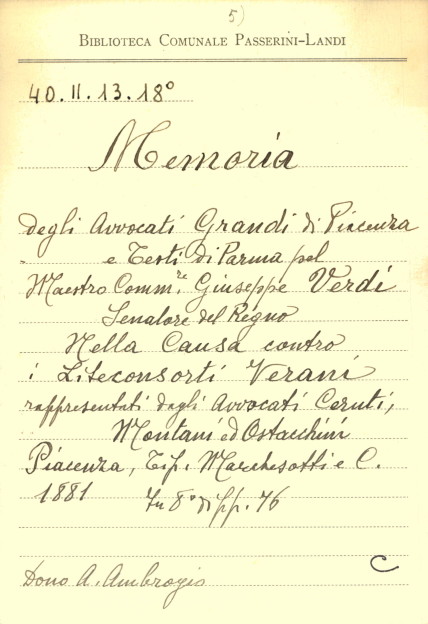 5)
BIBLIOTECA COMUNALE PASSERINI-LANDI
40.II.13.18°
Memoria
degli Avvocati Grandi di Piacenza
e Testi di Parma pel
Maestro Comm.re Giuseppe Verdi
Senatore del Regno
Nella Causa contro
i Liteconsorti Verani
rappresentati dagli Avvocati Ceruti,
Montani ed Ostacchini
Piacenza, Tip. Marchesotti e C.
1881 In 8° di pp. 76
C
Dono A. Ambrogio